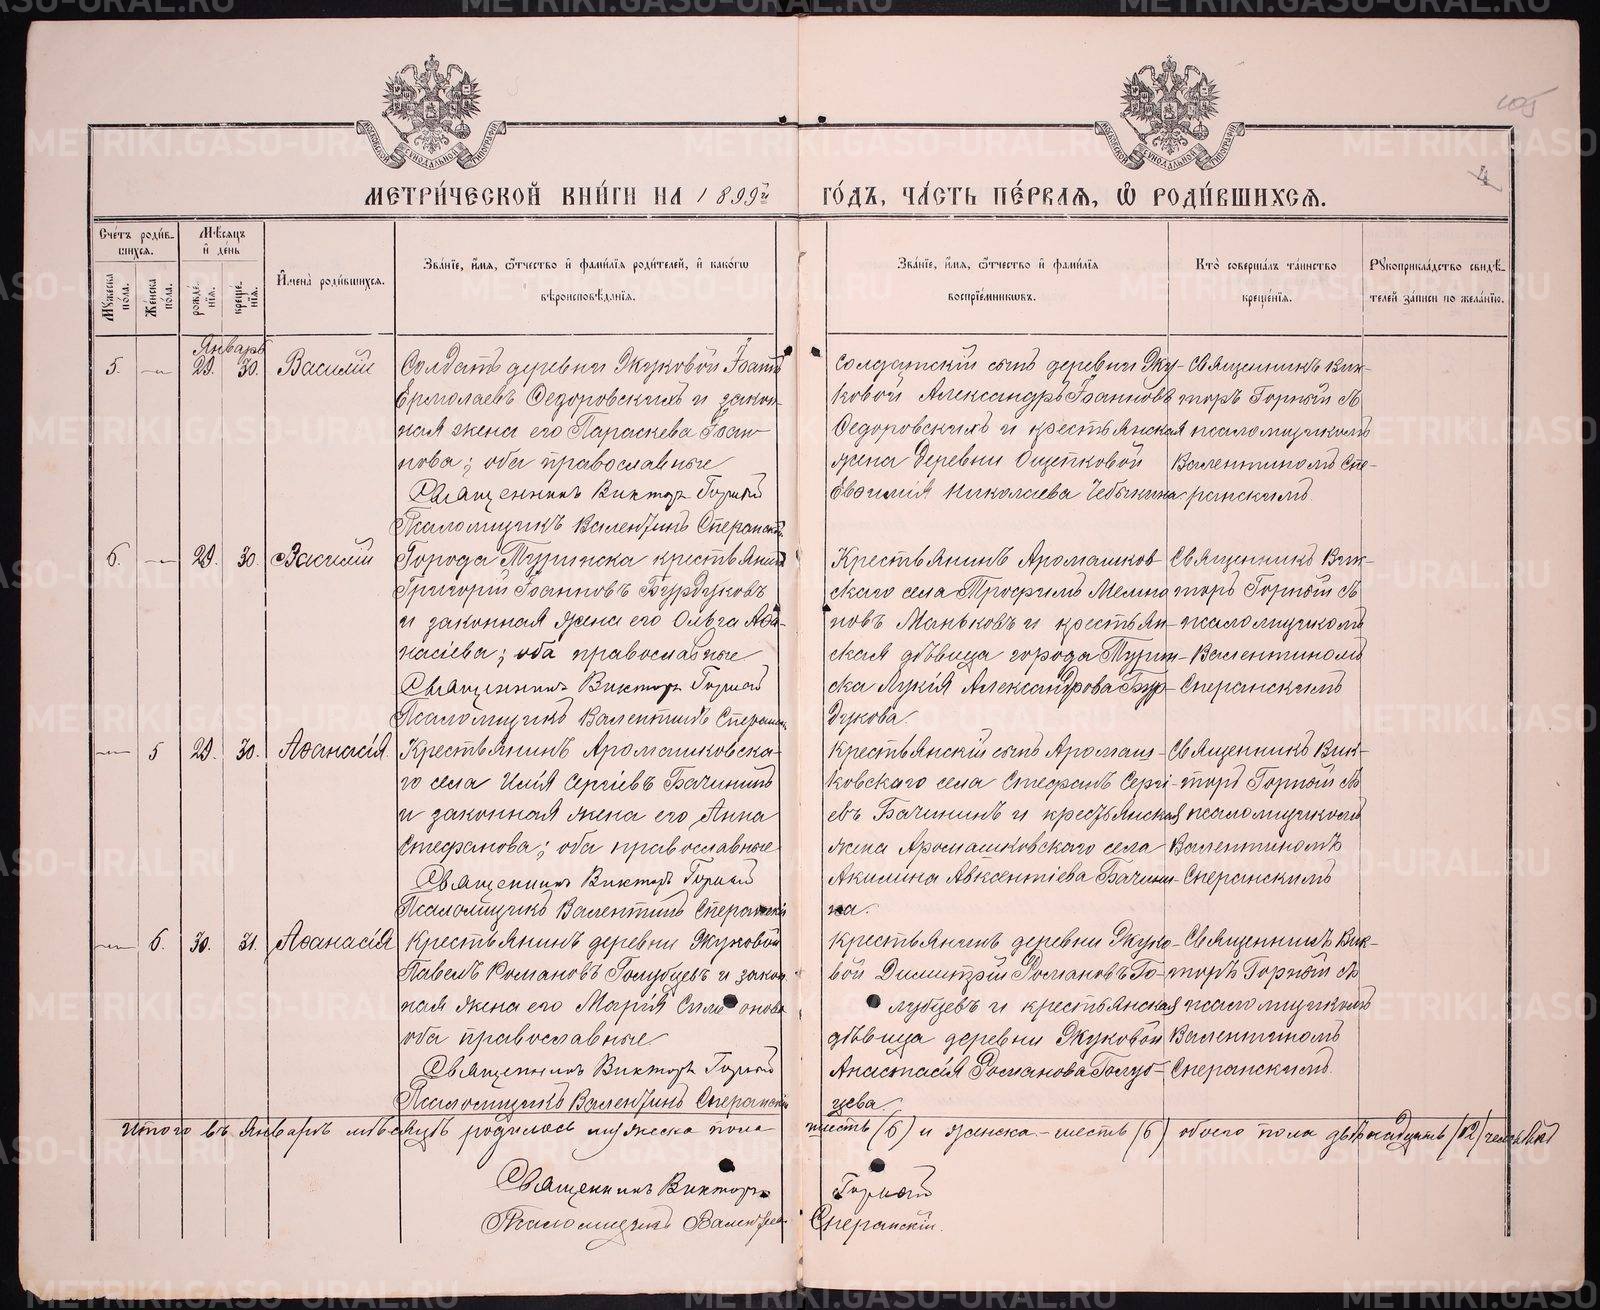 105
4
МЕТРИ́ЧЕСКОЙ КНИ́ГИ НА 1899й ГО́ДЪ, ЧА́СТЬ ПЕ́РВАЯ, Ѡ РОДИ́ВШИХСЯ.
Сче́тъ роди́в-
шихся.
Мꙋжеска по́ла.
Же́нска по́ла.
Мѣ́сяцъ и де́нь
рожде́нїя.
креще́нїя.
И҆мена̀ роди́вшихся.
Зва́нїе, и҆́мя, ѻ҆́тчество и҆ фами́лїѧ роди́телей, и҆ како́гѡ
вѣроисповѣ́данїѧ.
Зва́нїе, и҆́мя, ѻ҆́тчество и҆ фами́лїѧ
воспрїе́мникѡвъ.
Кто̀ соверша́лъ та́инство
креще́нїѧ.
Рꙋкоприкла́дство свидѣ́-
телей за́писи по жела́нїю.
Январь
5. — 29. 30. Василій
Солдатъ деревни Жуковой Іоаннъ
Ермолаевъ Ѳедоровскихъ и закон-
ная жена его Параскева Іоан-
нова; оба православные
Священникъ Викторъ Горный
Псаломщикъ Валентинъ Сперанскій
солдатскій сынъ деревни Жу-
ковой Александръ Іоанновъ
Ѳедоровскихъ и крестьянская
жена деревни Ощепковой
Евѳимія Николаева Чебыкина
Священникъ Вик-
торъ Горный съ
псаломщикомъ
Валентиномъ Спе-
ранскимъ.
6. — 29. 30. Василій
Города Туринска крестьянинъ
Григорій Іоанновъ Бурдуковъ
и законная жена его Ольга Аѳа-
насіева; оба православные
Священникъ Викторъ Горный
Псаломщикъ Валентинъ Сперанскій
Крестьянинъ Аромашков-
скаго села Трофимъ
новъ Маньковъ и крестьян-
ская дѣвица города Турин-
ска Лукія Александрова Бур-
дукова.
Священникъ Вик-
торъ Горный съ
псаломщикомъ
Валентиномъ
Сперанскимъ
— 5 29. 30. Аѳанасія
Крестьянинъ Аромашковска-
го села Илія Сергіевъ Бачининъ
и законная жена его Анна
Стефанова; оба православные
Священникъ Викторъ Горный
Псаломщикъ Валентинъ Сперанскій
крестьянскій сынъ Аромаш-
ковскаго села Стефанъ Сергі-
евъ Бачининъ и крестьянская
жена Аромашковскаго села
Акилина Авксентіева Бачини-
на.
Священникъ Вик-
торъ Горный съ
псаломщикомъ
Валентиномъ
Сперанскимъ
— 6. 30. 31. Аѳанасія
Крестьянинъ деревни Жуковой
Павелъ Романовъ Голубцевъ и закон-
ная жена его Марія
оба православные
Священникъ Викторъ Горный
Псаломщикъ Валентинъ Сперанскій
крестьянинъ деревни Жуко-
вой Димитрій Романовъ Го-
лубцевъ и крестьянская
дѣвица деревни Жуковой
Анастасія Романова Голуб-
цева.
Священникъ Вик-
торъ Горный съ
псаломщикомъ
Валентиномъ
Сперанскимъ.
Итого въ Январѣ мѣсяцѣ родилось мужеска пола шесть (6) и женска - шесть (6) обоего пола двѣнадцать (12) человѣкъ
Священникъ Викторъ Горный
Псаломщикъ Валентинъ Сперанскій.
METRIKI.GASO-URAL.RU